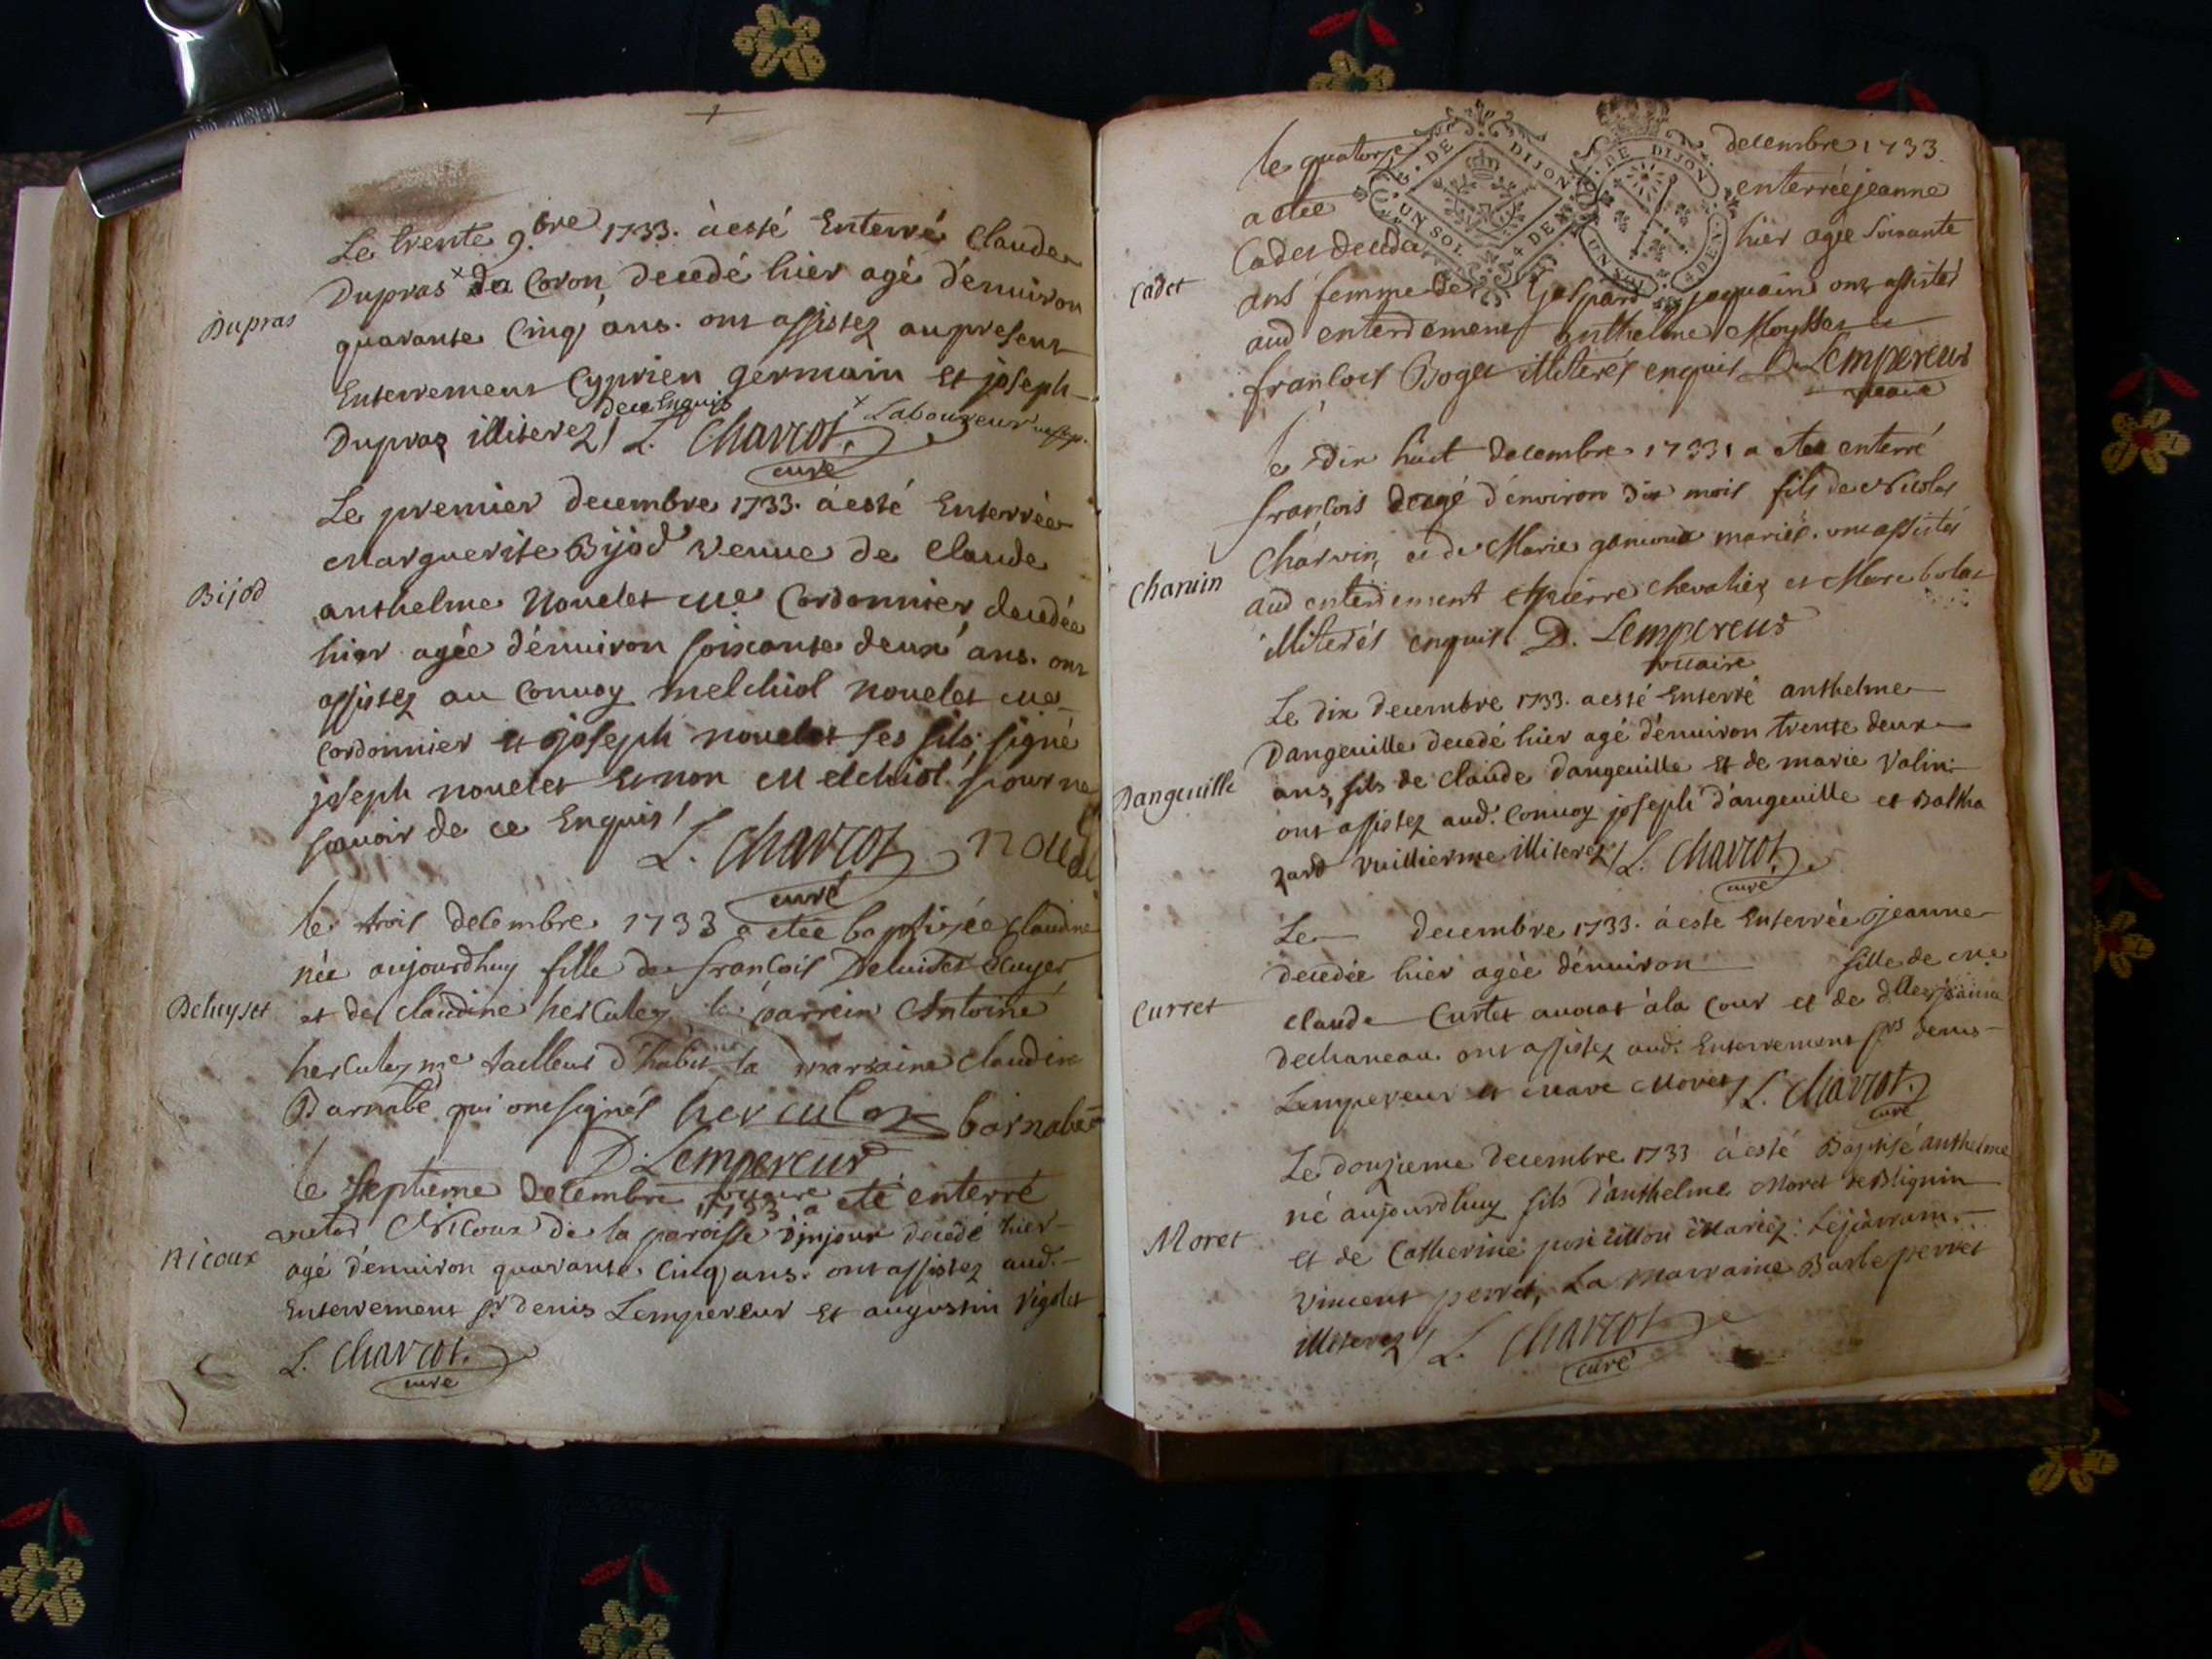 Le trente 9.bre 1733. à esté Enterré Claude
Dupras x de Coron, decedé hier agé d'enuiron
Dupras
quarante Cinq ans. ont assistez au present
Enterrement Cyprien germain et joseph
de ce Enquis
Dupraz illiterez / L. Charcot. x Laboureur
curé
Le premier decembre 1733. à esté Enterrée
Marguerite Bijod Veuue de Claude
Bijod
anthelme Nouelet Me Cordonnier, decedée
hier agée d'enuiron soixante deux ans. ont
assistez au Conuoy melchiol nouelet Me
Cordonnier et joseph nouelet ses fils; signé
joseph nouelet et non Melchiol pour ne
sçauoir de ce Enquis /
L. Charcot
curé
le trois decembre 1733 a eteé baptizée Claudine
née aujourdhuy fille de françois Deluiset Ecuyer
Deluyset
et de Claudine herculez le parrein Antoine
herculez me tailleur d'habit la marraine Claudine
Barnabé qui ont signés herculez barnabé
D. Lempereur
vicaire
le septieme decembre 1733 a eté enterré
Nicoux de la paroisse d'injoux decedé hier
Nicoux
agé d'enuiron quarante Cinq ans. ont assistez aud.
Enterrement sr. denis Lempereur et augustin Vigolet
L. Charcot.
curé
le quatorze decembre 1733
G. DE DIJON
UN SOL 4 DEN
G. DE DIJON
UN SOL 4 DEN
a eteé enterrée jeanne
Cadet decedée hier agée soixante
Cadet
ans femme de Gaspard joquain ont assistés
aud enterrement anthelme Moyssar et
françois Boget illiterés enquis D. Lempereur
vicaire
le dix huit decembre 1733 a eteé enterré
françois agé d'environ dix mois fils de Nicolas
Charvin et de Marie mariés. ont assistés
Charuin
aud enterrement pierre chevalier et Marc bolat
illiterés enquis. D. Lempereur
vicaire
Le dix decembre 1733. a esté Enterré anthelme
Dangeuille decedé hier agé d'enuiron trente deux
Dangeuille
ans, fils de Claude Dangeuille et de marie Valin.
ont assistez aud. Conuoy joseph d'angeuille et Baltha
zard Vuillierme illiterez / L. Charcot.
curé
Le decembre 1733. à esté Enterrée jeanne
decedée hier agée d'enuiron fille de me
Curtet
Claude Curtet auocat à la Cour et de dlle jeanne
dechaneau. ont assistez aud. Enterrement srs denis
Lempereur et Marc Moret / L. Charcot.
curé
Le douzieme decembre 1733 à esté Baptisé anthelme
né aujourdhuy fils d'anthelme Moret de Blignin
Moret
et de Catherine ponillon Mariez. Le parrain
Vincent perret, La marraine Barbe perret
illiterez / L. Charcot
curé